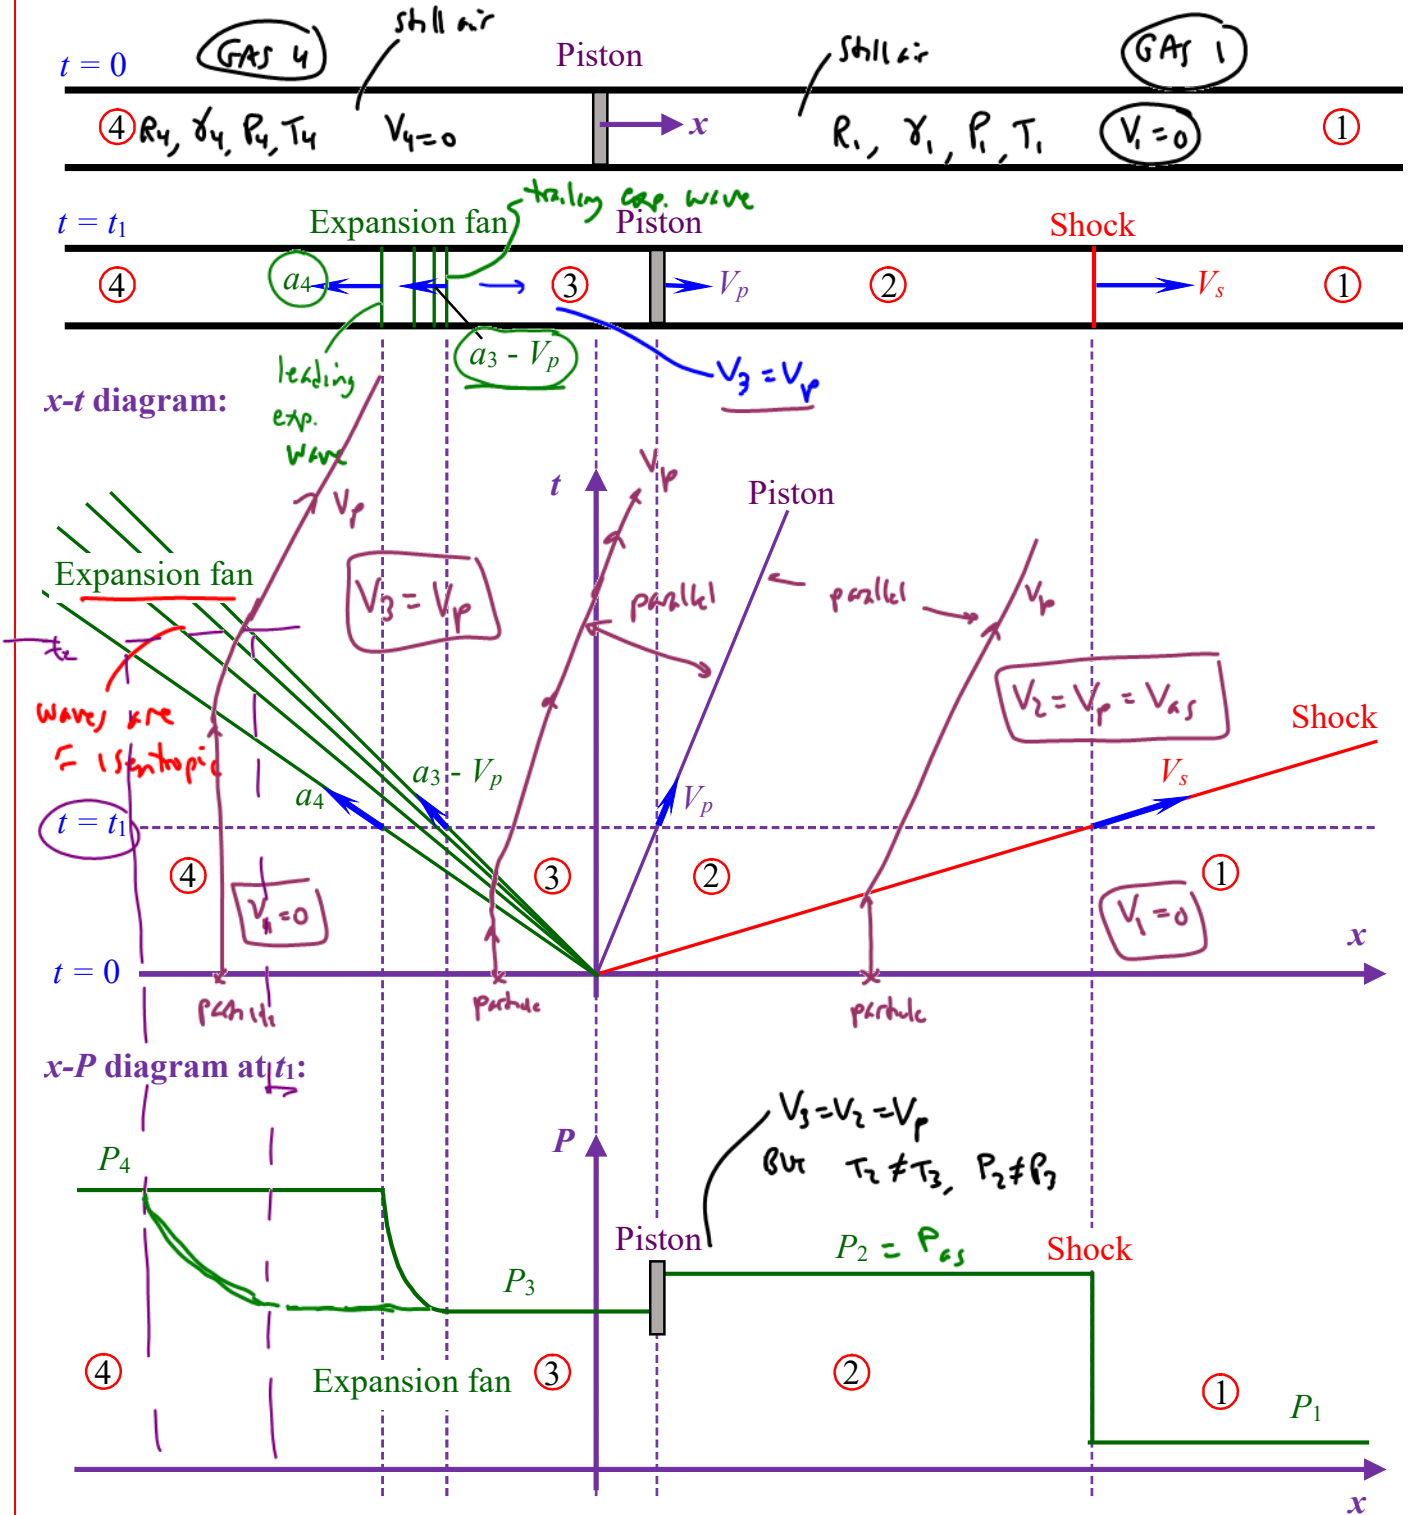 still air
GAS 4
Piston
still air
GAS 1
t = 0
④ R₄, γ₄, P₄, T₄ V₄=0
x
R₁, γ₁, P₁, T₁ V₁=0 ①
trailing exp. wave
t = t₁
Expansion fan
Piston
Shock
④ a₄ ③ Vₚ ② Vₛ ①
a₃ - Vₚ
V₃ = Vₚ
leading
exp.
wave
x-t diagram:
t
Vₚ
Piston
Vₚ
Expansion fan
V₃ = Vₚ
parallel
parallel
Vₚ
t₂
waves are
isentropic
V₂ = Vₚ = Vas
Shock
a₄
a₃ - Vₚ
Vₚ
Vₛ
t = t₁
④ ③ ② ①
=0
V₁ = 0
x
t = 0
particle
particle
particle
x-P diagram at t₁:
V₃=V₂=Vₚ
BUT T₂ ≠ T₃, P₂ ≠ P₃
P
P₄
Piston
P₂ = Pas
Shock
P₃
④ Expansion fan ③ ② ①
P₁
x